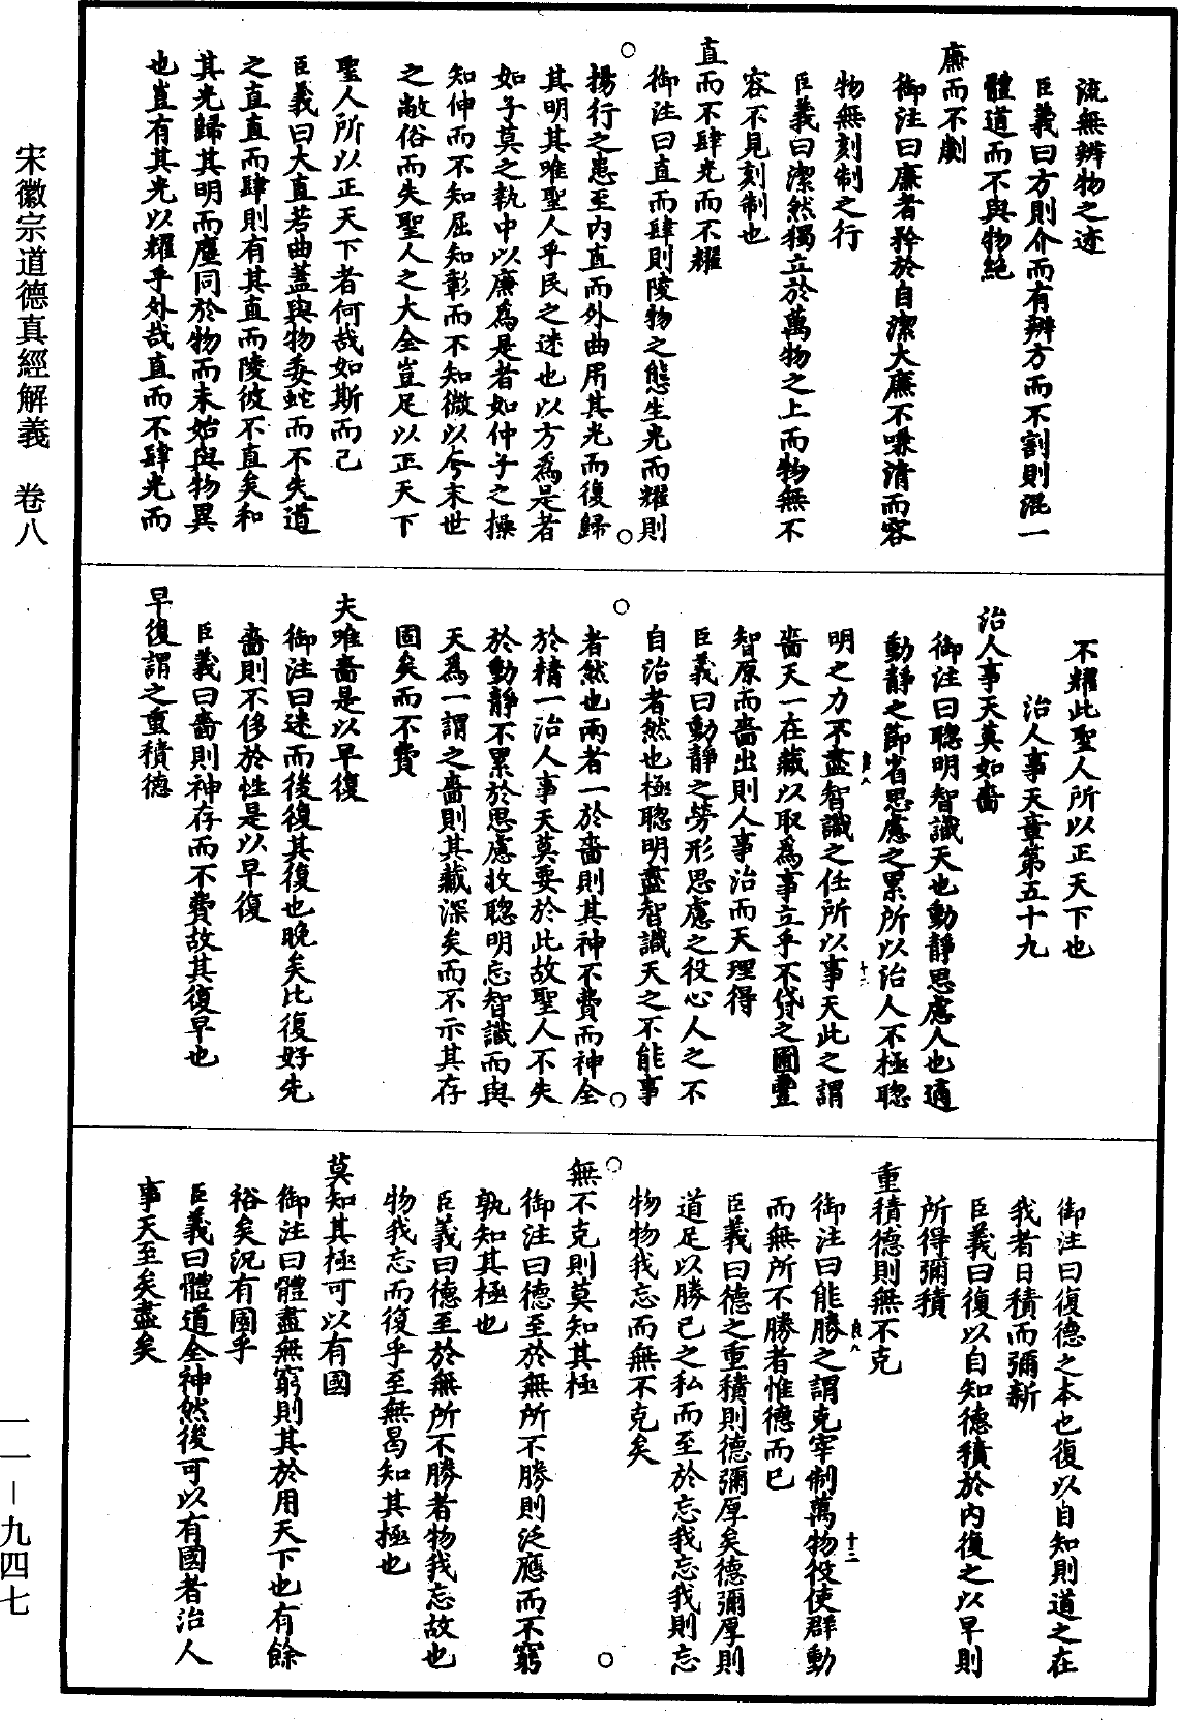 流無辨物之迹
臣義曰方則介而有辨方而不割則混一
體道而不與物絕
廉而不劌
御注曰廉者矜於自潔大廉不嗛清而容
物無刻制之行
臣義曰潔然獨立於萬物之上而物無不
容不見刻制也
直而不肆光而不耀
御注曰直而肆則陵物之態生光而耀則
揚行之患至内直而外曲用其光而復歸
其明其唯聖人乎民之迷也以方爲是者
如子莫之執中以廉爲是者如仲子之操
知伸而不知屈知彰而不知微以夸末世
之敝俗而失聖人之大全豈足以正天下
聖人所以正天下者何哉如斯而已
臣義曰大直若曲蓋與物委蛇而不失道
之直直而肆則有其直而陵彼不直矣和
其光歸其明而塵同於物而未始與物異
也豈有其光以耀乎外哉直而不肆光而
不耀此聖人所以正天下也
治人事天章第五十九
治人事天莫如嗇
御注曰聰明智識天也動靜思慮人也適
動靜之節省思慮之累所以治人不極聰
明之力不盡智識之任所以事天此之謂
嗇天一在藏以取爲事立乎不貸之圃豐
智原而嗇出則人事治而天理得
臣義曰動靜之勞形思慮之役心人之不
自治者然也極聰明盡智識天之不能事
者然也兩者一於嗇則其神不費而神全
於精一治人事天莫要於此故聖人不失
於動靜不累於思慮收聰明忘智識而與
天爲一謂之嗇則其藏深矣而不示其存
固矣而不費
夫唯嗇是以早復
御注曰迷而後復其復也晚矣比復好先
嗇則不侈於性是以早復
臣義曰嗇則神存而不費故其復早也
早復謂之重積德
御注曰復德之本也復以自知則道之在
我者日積而彌新
臣義曰復以自知德積於内復之以早則
所得彌積
重積德則無不克
御注曰能勝之謂克宰制萬物役使群動
而無所不勝者惟德而已
臣義曰德之重積則德彌厚矣德彌厚則
道足以勝己之私而至於忘我忘我則忘
物物我忘而無不克矣
無不克則莫知其極
御注曰德至於無所不勝則泛應而不窮
孰知其極也
臣義曰德至於無所不勝者物我忘故也
物我忘而復乎至無曷知其極也
莫知其極可以有國
御注曰體盡無窮則其於用天下也有餘
裕矣況有國乎
臣義曰體道全神然後可以有國者治人
事天至矣盡矣
宋徽宗道德真經解義　卷八
一一－九四七